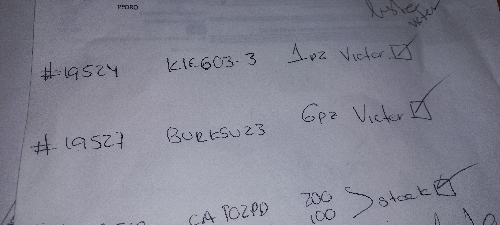 PEDRO
Victor
#19524 KIE603-3 1pz Victor
#19527 BURKSU23 6pz Victor
CAP02PD 200 stock
100